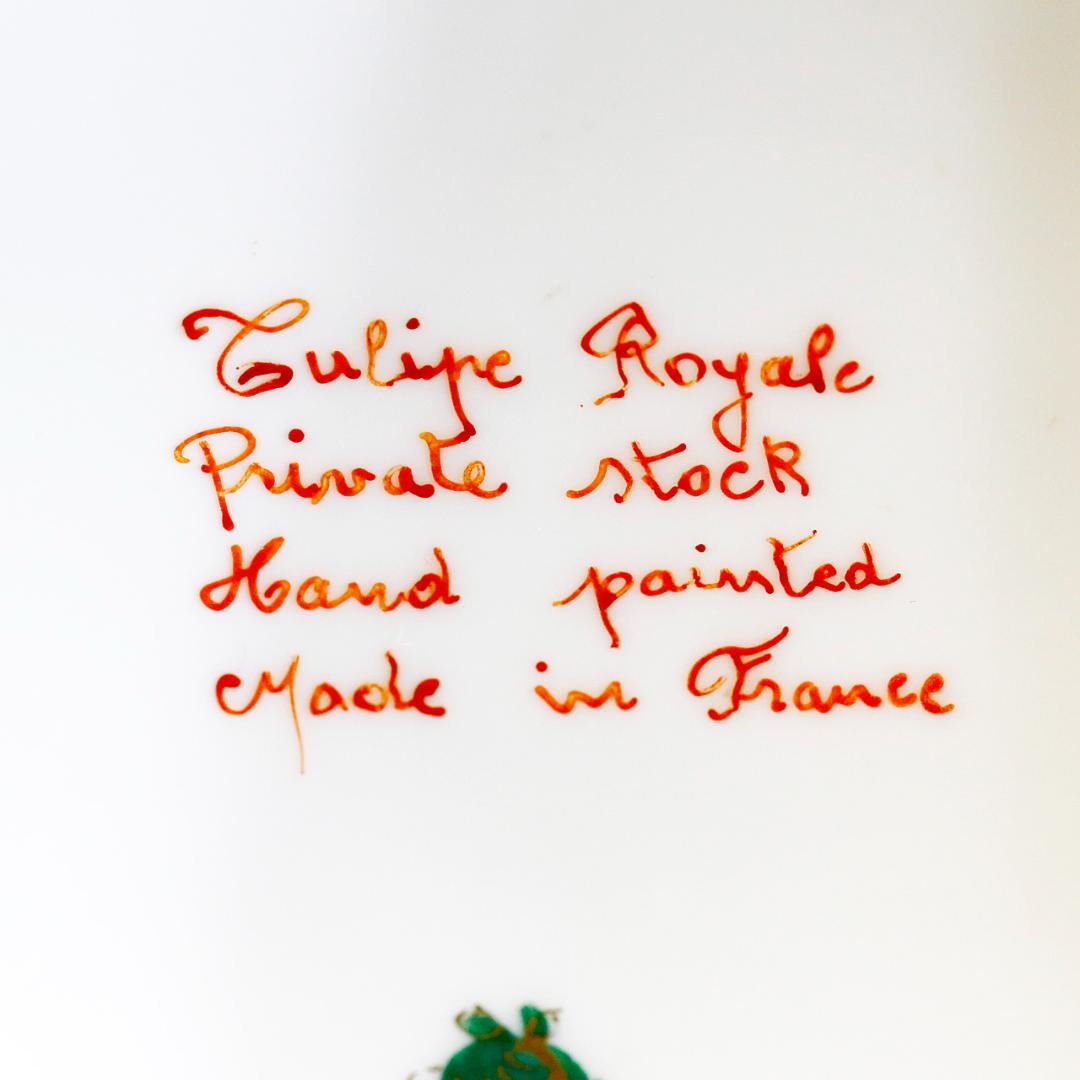 Tulipe Royale
Private stock
Hand painted
Made in France